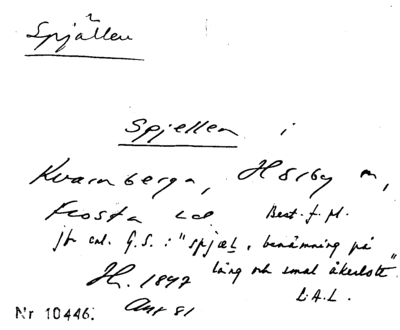 Spjällen
Spjellen i
Kvarnberga, Hörby sn,
Frosta hd Best. f. pl.
jfr enl. G.S. : "spjæl, benämning på
lång och smal åkerlott".
Hr. 1847 L.A.L.
Nr 10446.